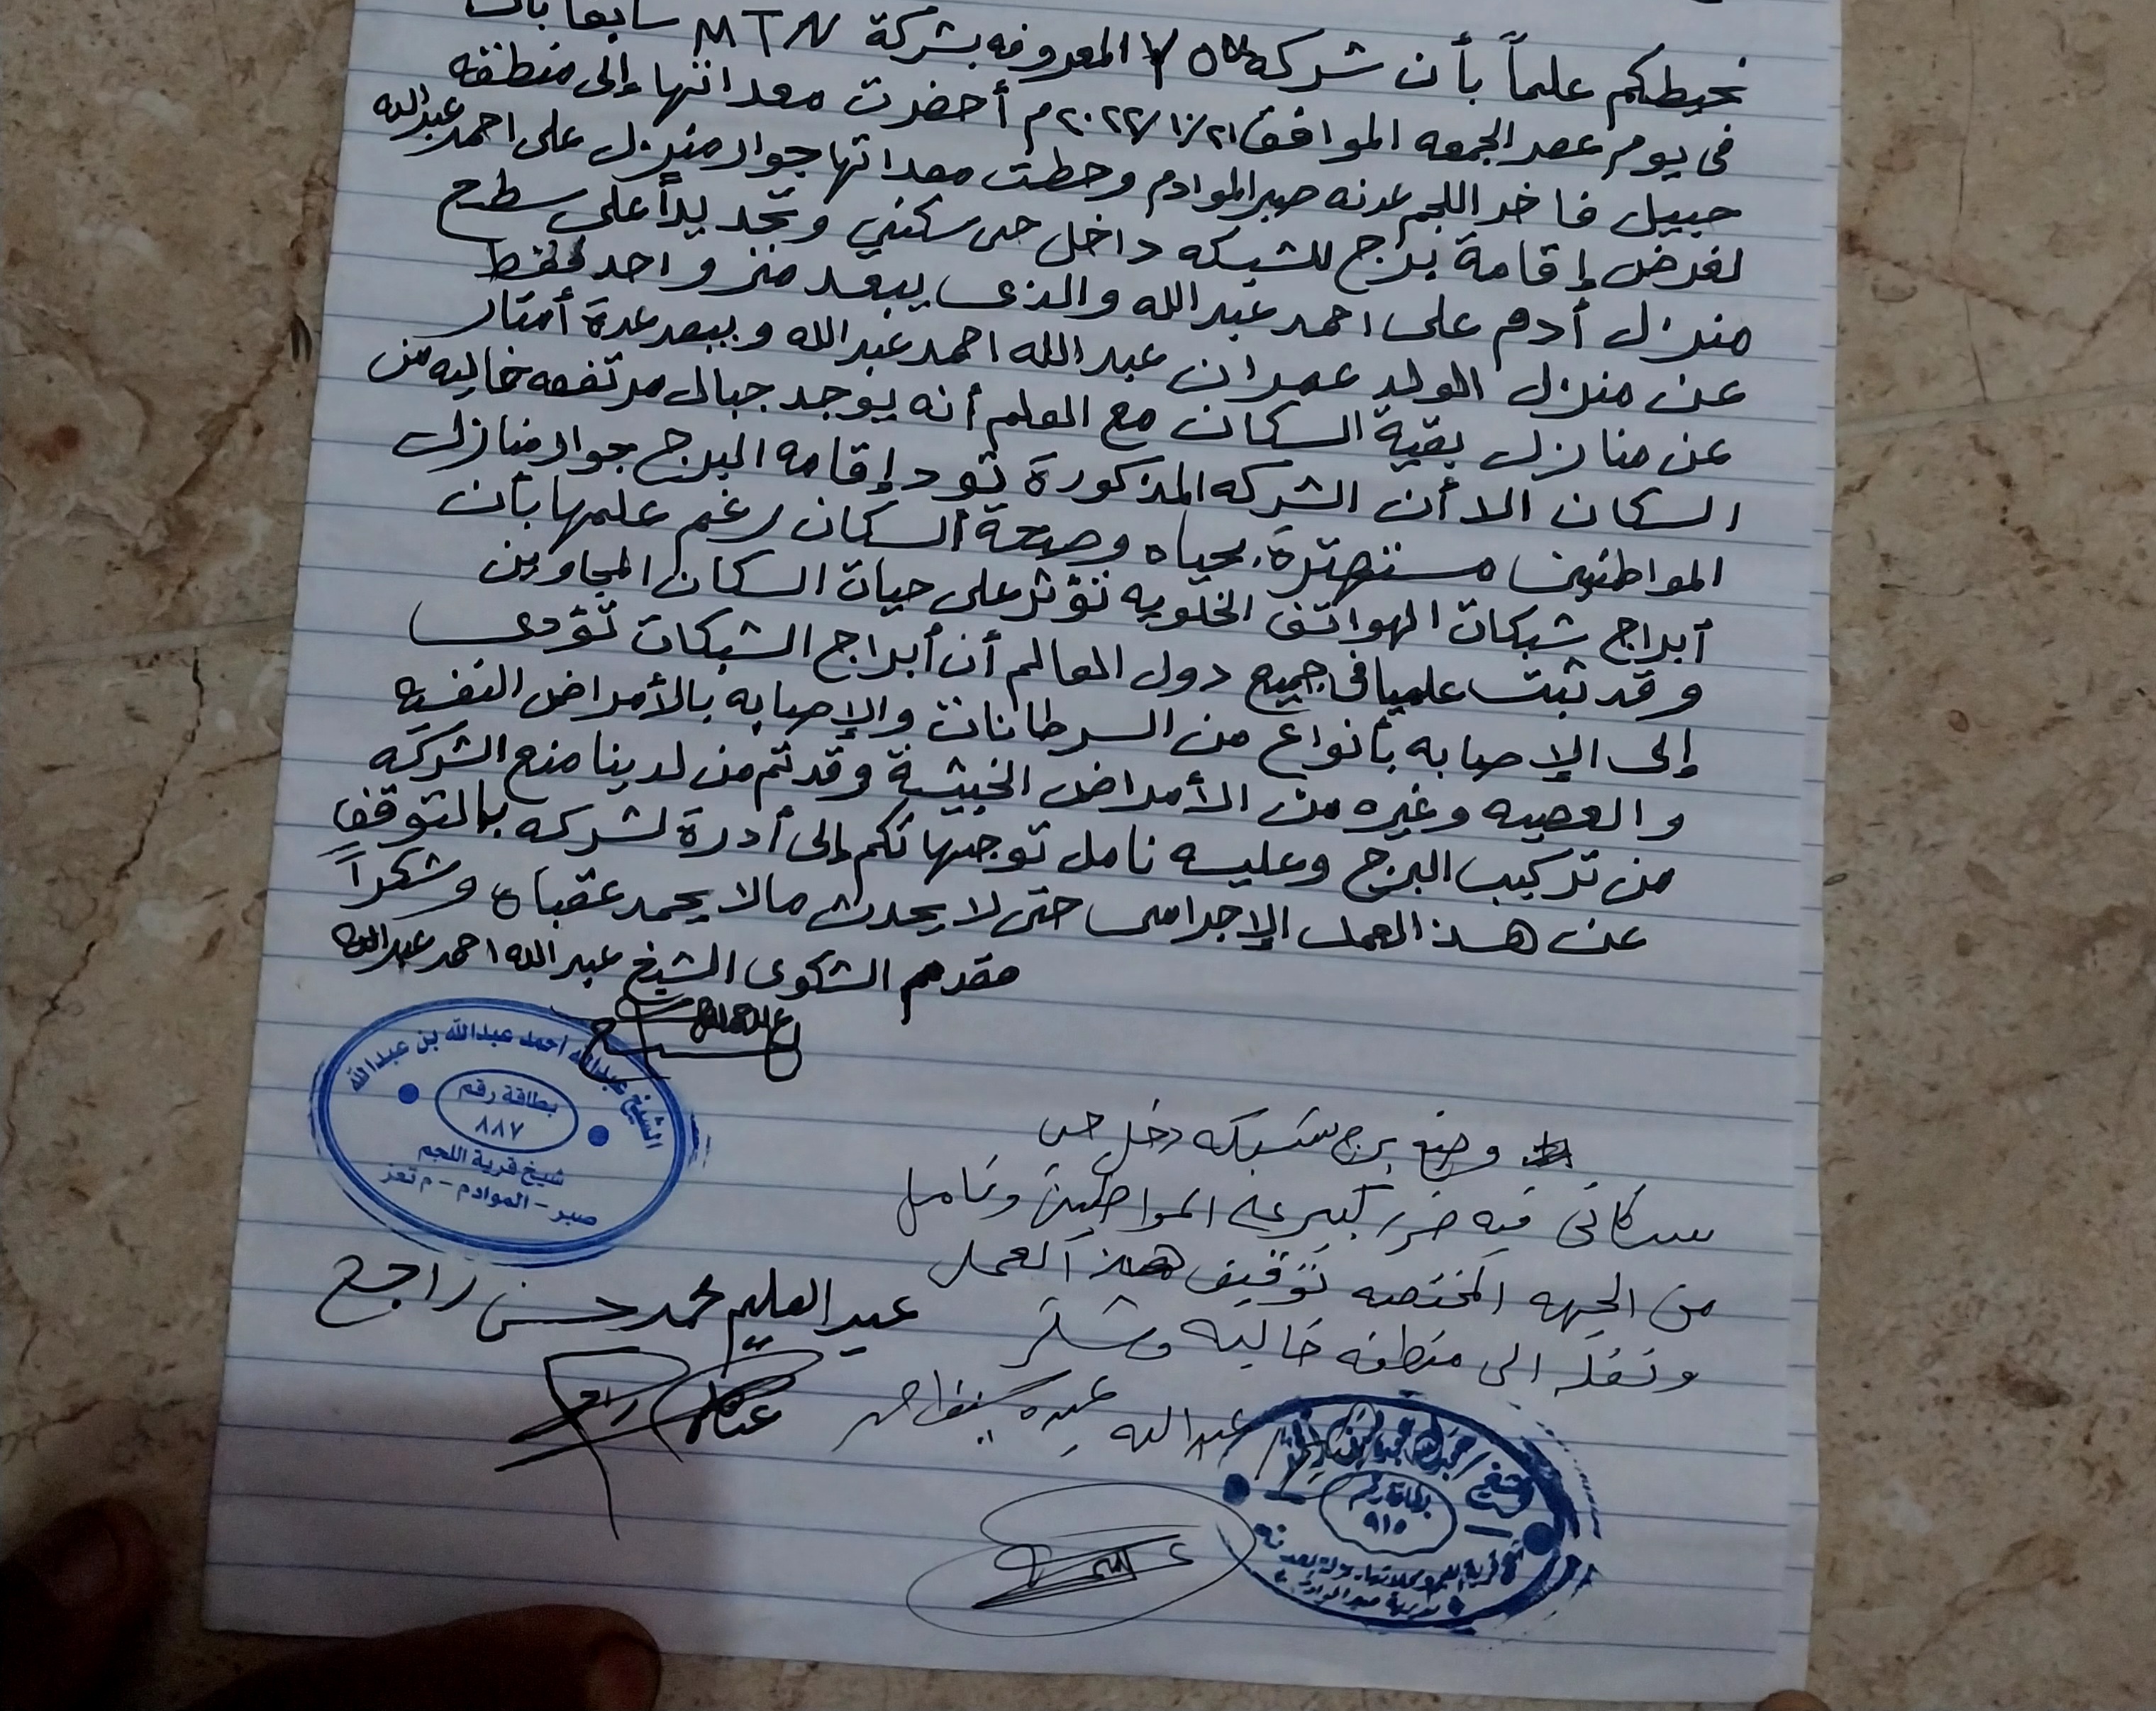 نحيطكم علماً بأن شركه you المعروفه بشركة MTN سابقا بأنه
فى يوم عصر الجمعه الموافق ٢٠٢٢/١٠/٢١م أحضرت معداتها إلى منطقه
حبيل فاخر اللجم عدنه صبر الموادم وحطت معداتها جوار منزل على احمد عبدالله
لغرض إقامة برج للشبكه داخل حى سكني وتجديداً على سطح
منزل أدم على احمد عبدالله والذى يبعد متر واحد فقط
عن منزل الولد عمران عبدالله احمد عبدالله ويبعد عدة أمتار
عن منازل بقية السكان مع العلم أنه يوجد جبال مرتفعه خاليه من
السكان الا أن الشركه المذكورة تود إقامه البرج جوار منازل
المواطنين مستهترة بحياه وصحة السكان رغم علمها بأن
أبراج شبكات الهواتف الخلويه تؤثر على حيات السكان المجاورين
وقد ثبت علميا فى جميع دول العالم أن أبراج الشبكات تؤدى
إلى الإصابه بأنواع من السرطانات والإصابه بالأمراض النفسيه
والعصبيه وغيره من الأمراض الخبيثة وقد تم من لدينا منع الشركه
من تركيب البرج وعليه نامل توجيهاتكم إلى أدرة لشركه بالتوقف
عن هذا العمل الإجرامى حتى لا يحدث مالا يحمد عقباه وشكراً
مقدم الشكوى الشيخ عبدالله احمد عبدالله
الشيخ عبدالله احمد عبدالله بن عبدالله
بطاقة رقم
٨٨٧
شيخ قرية اللجم
صبر - الموادم - م تعز
وضع برج شبكه دخل حي
سكاني فيه ضرر كبير على المواطنين ونامل
من الجهه المختصه توقيف هذا العمل
ونقله الى منطقه خاليه وشكر
عبدالعليم محمد حسن راجح
عبدالله عبده سيف احمد
بطاقة رقم
٩١٥